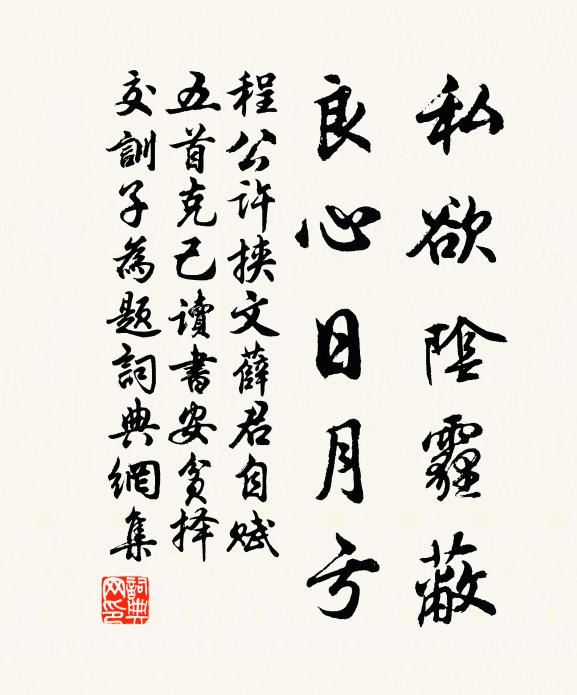 私欲陰霾蔽
良心日月亏
程公许挟文薛君自赋
五首克己读書安貧择
交訓子為题詞典網集
詞典网印